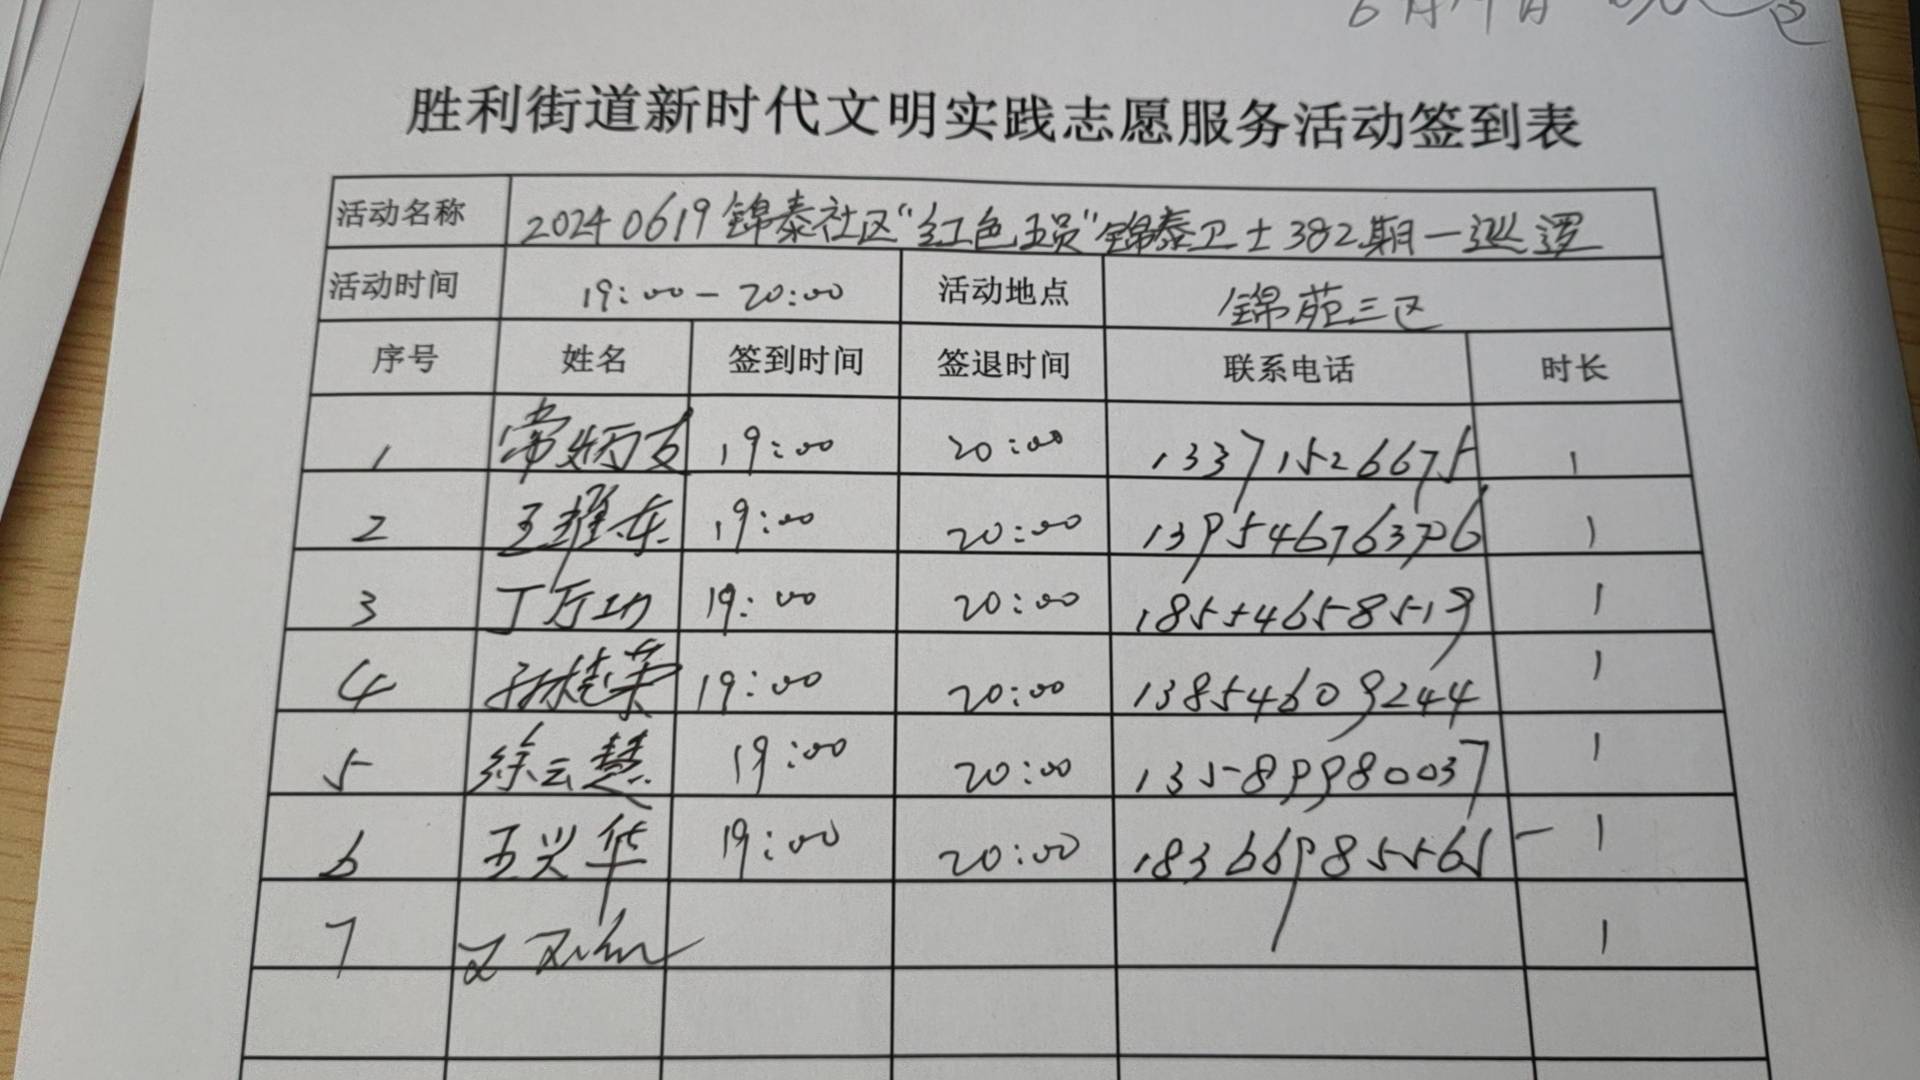 6月19日
胜利街道新时代文明实践志愿服务活动签到表
活动名称 20240619锦泰社区“红色五员”锦泰卫士382期一巡逻
活动时间 19:00-20:00 活动地点 锦苑三区
序号 姓名 签到时间 签退时间 联系电话 时长
1 常炳友 19:00 20:00 13371526675 1
2 王雅东 19:00 20:00 13954676376 1
3 丁厅功 19:00 20:00 18554658519 1
4 孙桂荣 19:00 20:00 13854609244 1
5 徐云慧 19:00 20:00 13589980037 1
6 王兴华 19:00 20:00 18366985565 1
7 1